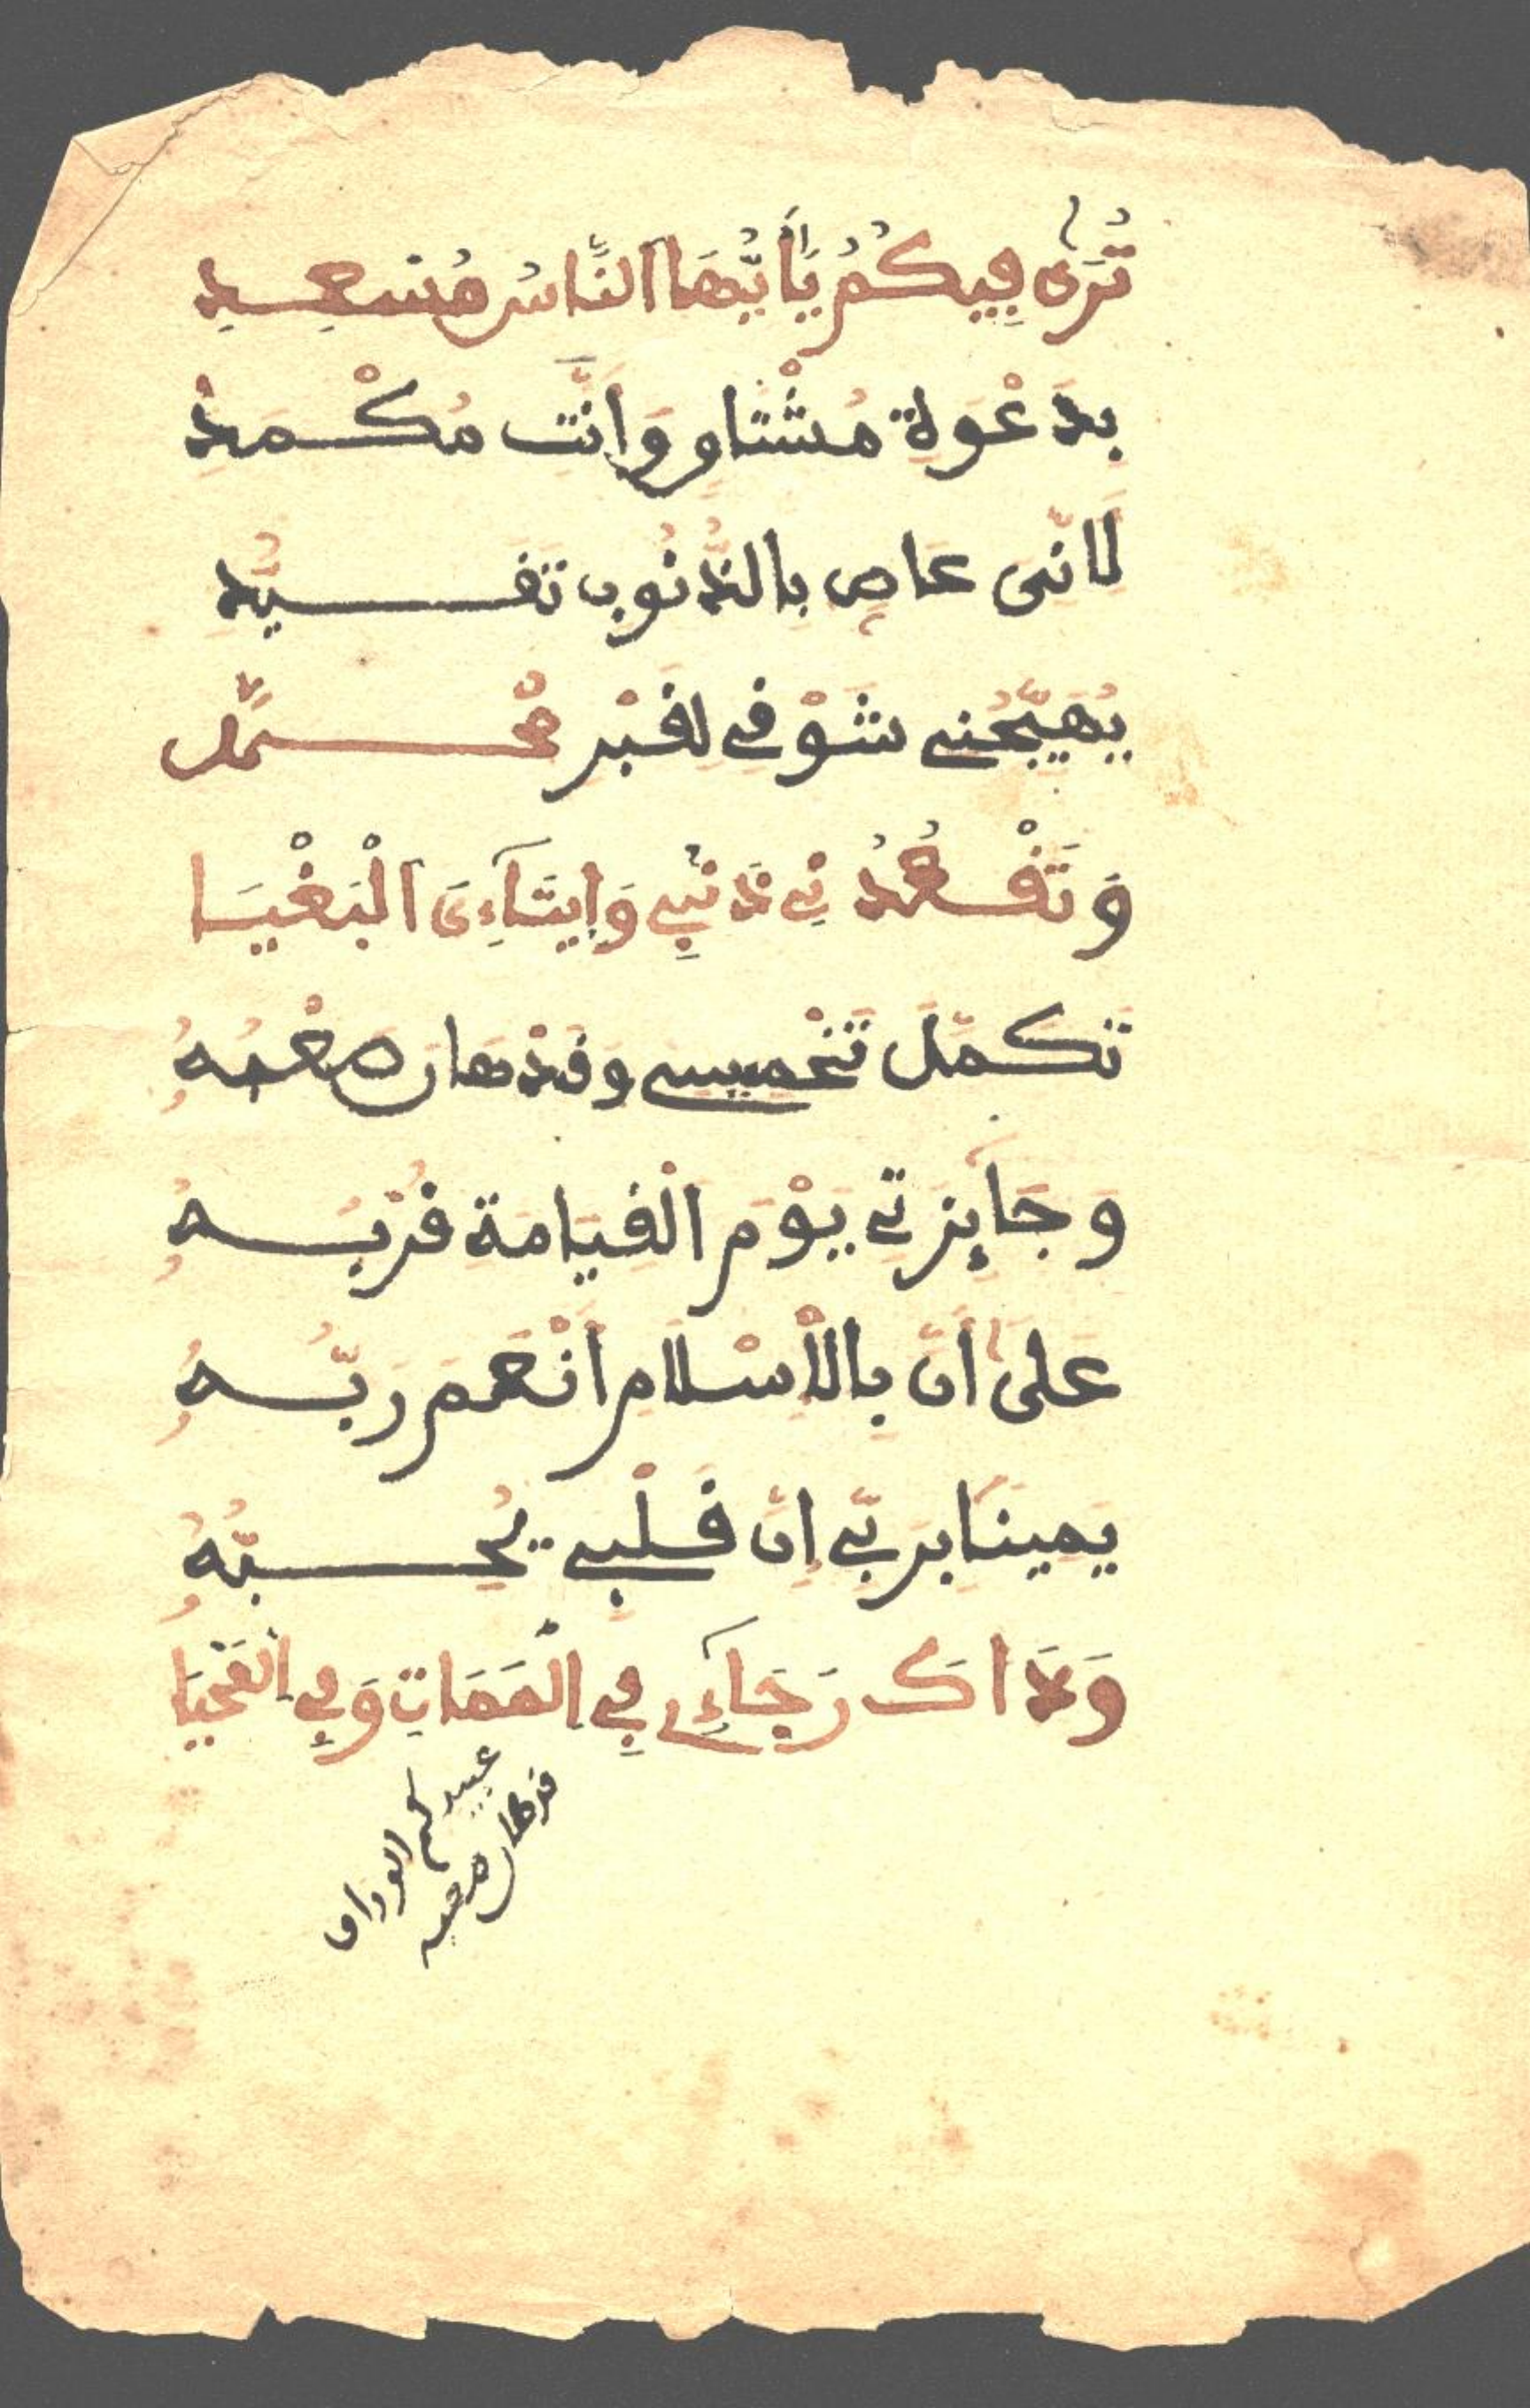 تُرَىٰ فِيكُمُ يَا أَيُّهَا النَّاسُ مُسْعِدِ
بدَعْوَةِ مُشْتَاقٍ وَانَّتِ مُكْمَدِ
لَانِّى عَاصٍ بِالذُّنُوبِ تَقَيُّدِ
يُهَيِّجُنِي شَوْقِي لِقَبْرِ مُحَمَّدٍ
وَتَقْعُدُنِي ذَنْبِي وَإِيتَآءِىَ الْبَغْيَا
تَكَمَّلَ تَخْمِيسِي وَقَدْ هَانَ صَعْبُهُ
وَجَايِزَتِي يَوْمَ الْقِيَامَةِ قُرْبُهُ
عَلَىٰ أَنَّ بِالْإِسْلَامِ أَنْعَمَ رَبُّهُ
يَمِينًا بِرَبِّي إِنَّ قَلْبِي يُحِبُّهُ
وَذَاكَ رَجَآءِي فِي الْمَمَاتِ وَفِي الْمَحْيَا
عبيدكم الوراق
قد هان صعبه